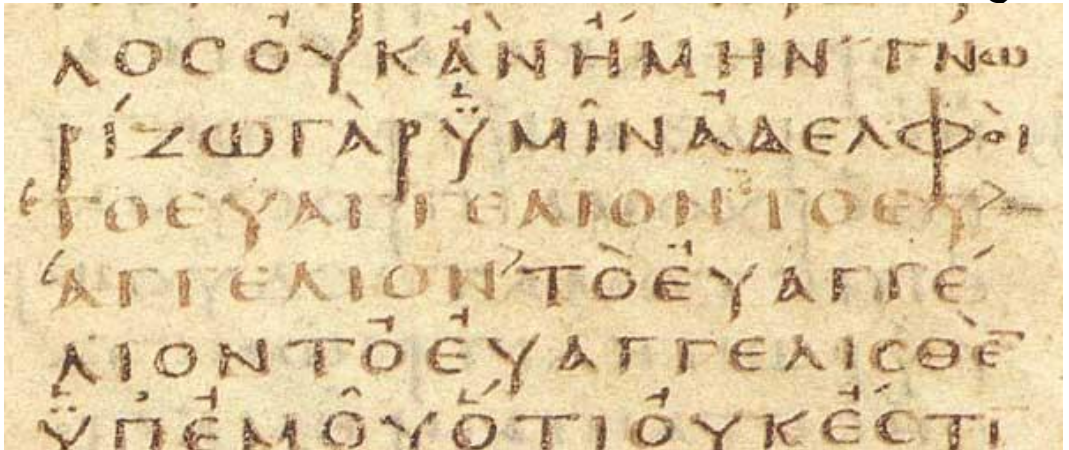 λοσὁυκἂνἤμηνγνω
ρίζωγὰρὑ̈μῖνἀδελφὸι
τοευαγγελιοντοευ
αγγελιοντὸἐυαγγέ
λιοντὸἐυαγγελισθὲ
ὑ̈π̓ἐμοῦὅτιὀυκἔστι